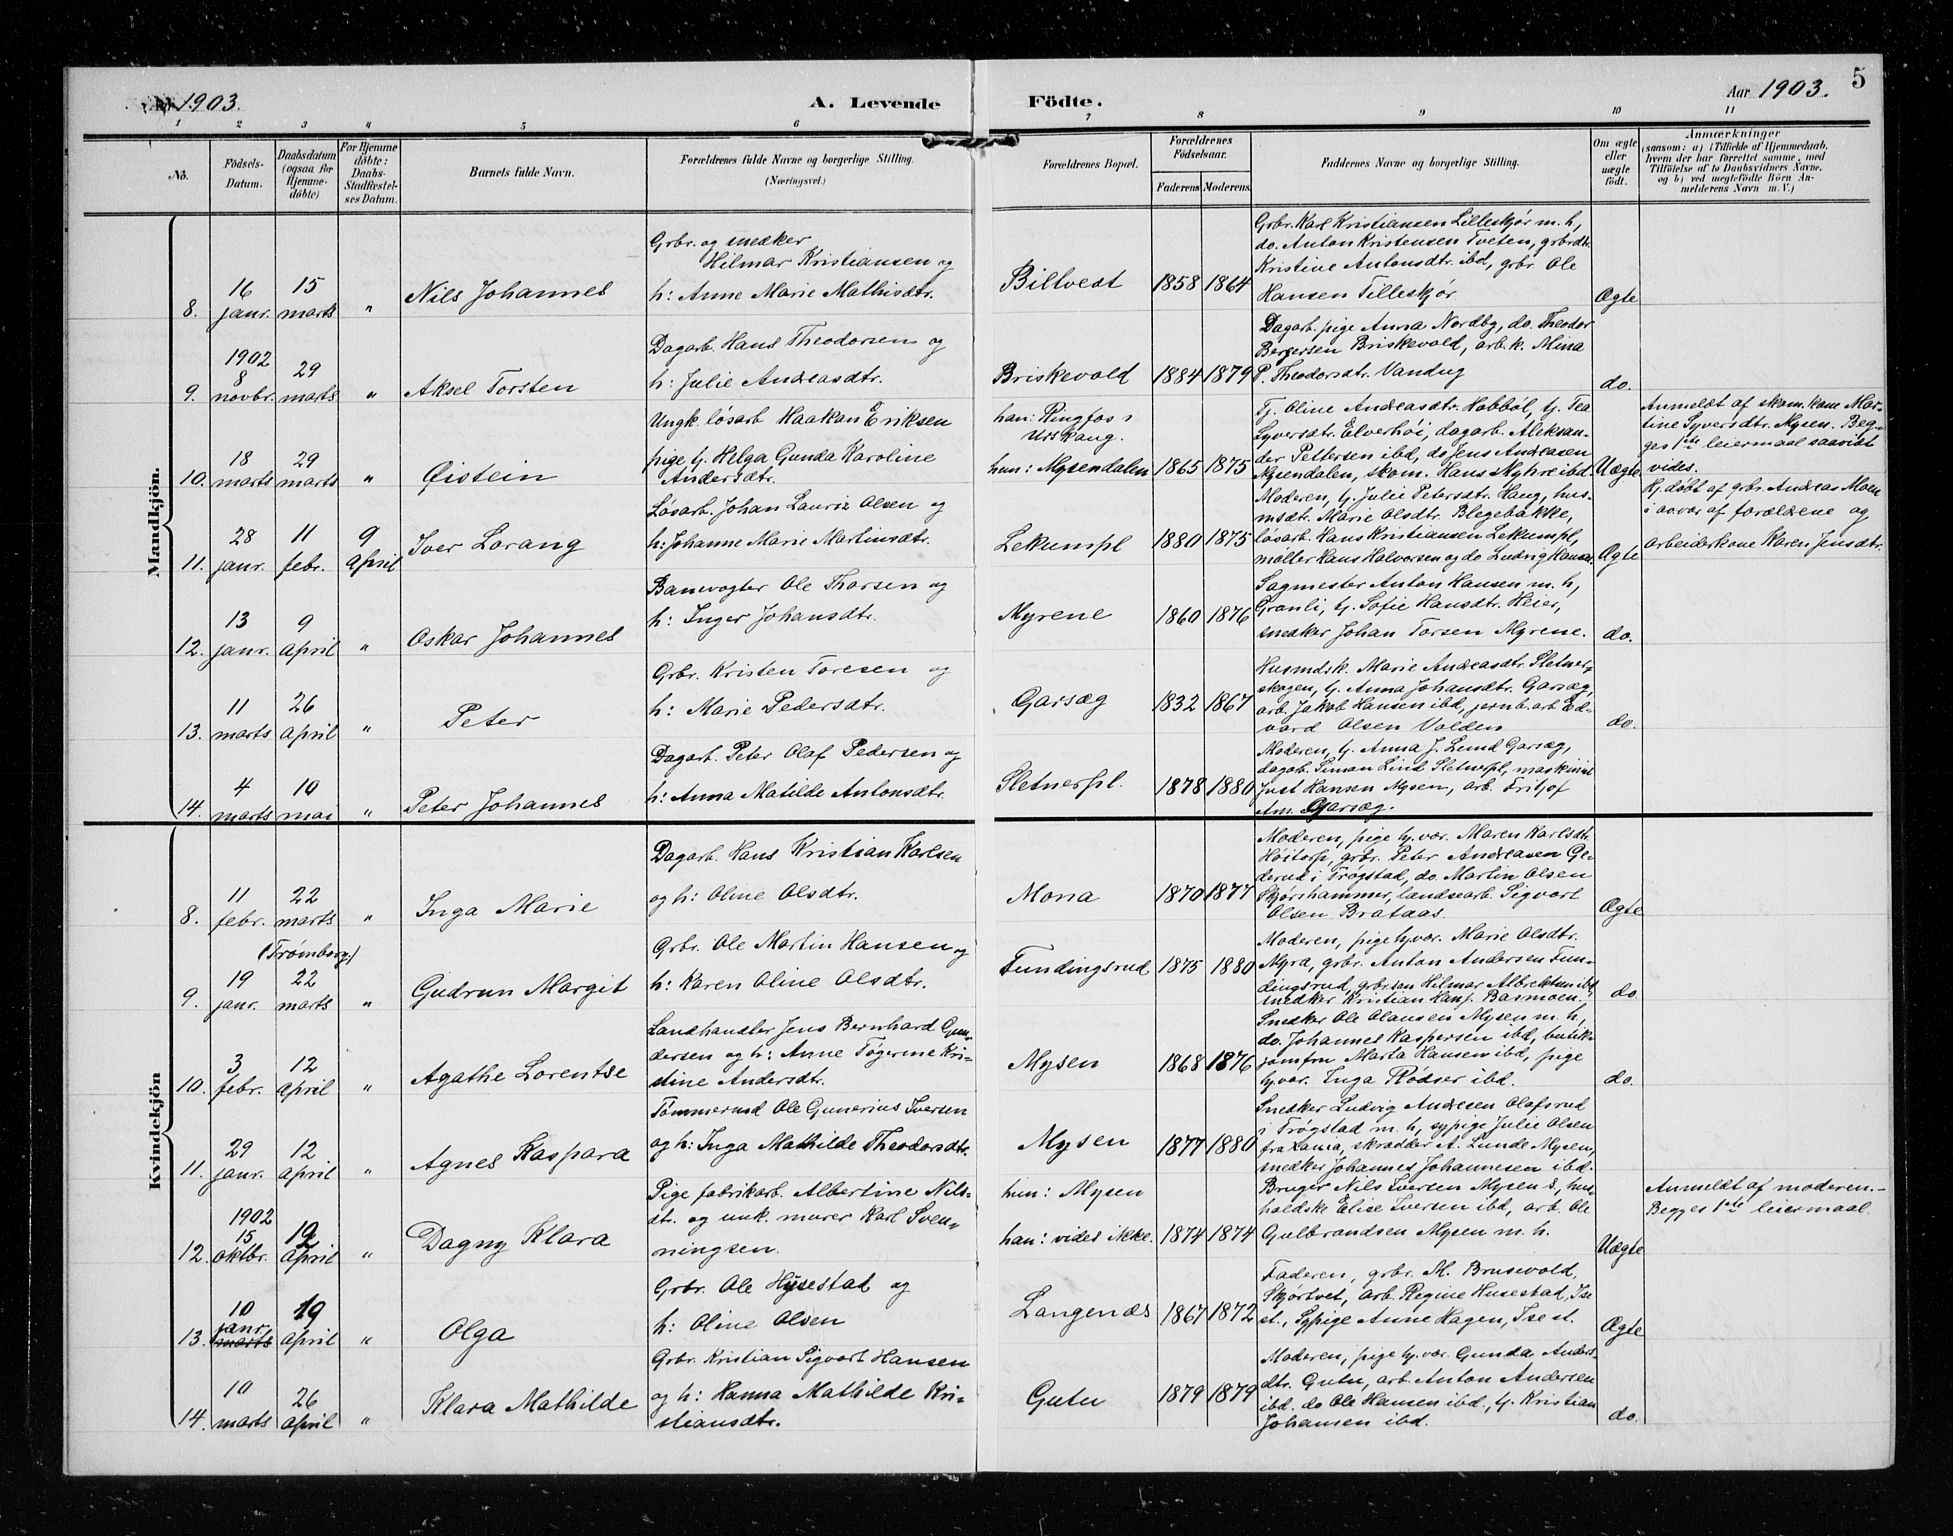 Aar 1903.
A. Levende
Födte.
Aar 1903.
5
1 2 3 4 5 6 7 8 9 10 11
No.
Födsels-
Datum.
Daabsdatum
(ogsaa for
Hjemme-
döbte)
For Hjemme
döbte:
Daabs-
Stadfæstel-
ses Datum.
Barnets fulde Navn.
Forældrenes fulde Navne og borgerlige Stilling.
(Næringsvei.)
Forældrenes Bopæl.
Forældrenes
Födselsaar.
Faderens. Moderens.
Faddernes Navne og borgerlige Stilling.
Om ægte
eller
uægte
födt.
Anmærkninger
(saasom: a) i Tilfælde af Hjemmedaab,
hvem der har forrettet samme, med
Tilföielse af to Daabsvidners Navne,
og b) ved uægtefödte Börn An-
melderens Navn m. V.)
Mandkjön.
8.
16
janr.
15
marts
"
Nils Johannes
Grbr. og snedker
Hilmar Kristiansen og
h: Anne Marie Mathisdtr.
Biltvedt
1858 1864
Grbr. Karl Kristiansen Lilleskjör m. h,
do. Anton Kristensen Tveten, grbrdtr.
Kristine Antonsdtr. ibd, grbr. Ole
Hansen Lilleskjör
Ægte
9.
1902
8
novbr.
29
marts
"
Aksel Torsten
Dagarb. Hans Theodorsen og
h: Julie Andreasdtr.
Briskevold
1884 1879
Dagarb. pige Anna Nordby, do. Theodor
Bergersen Briskevold, arb. k. Mina
P. Theodorsdtr. Vandug
do.
10.
18
marts
29
marts
"
Øistein
Ungk. lösarb Haakan Eriksen
pige tj. Helga Gunda Karoline
Andersdtr.
han: Ringfos i
Urskaug.
hun: Mysendalen
1865 1875
Tj. Oline Andreasdtr. Hobböl, tj. Tea
Syversdtr. Elverhöi, dagarb. Aleksan-
der Pettersen ibd, do Jens Andreasen
Mysendalen, skom. Hans Myhre ibd.
Uægte
Anmeldt af skom. kone Mar-
tine Syversdtr. Mysen. Beg-
ges 1ste leiermaal saavidt
vides.
11.
28
janr.
11
febr.
9
April
Iver Lorang
Lösarb. Johan Lauriz Olsen og
h: Johanne Marie Martinsdtr.
Lekumpl
1880 1875
Moderen, tj. Julie Petersdtr. Haug, hus-
msdtr. Marie Olsdtr. Blegebakke,
lösarb. Hans Kristiansen Lekumpl,
möller Hans Halvorsen og do Ludvig Hansen
Ægte
Hj. döbt af grbr. Andreas Moen
i nærvær af forældrene og
arbeiderkone Karen Jensdtr.
12.
13
janr.
9
april
"
Oskar Johannes
Banevogter Ole Thorsen og
h: Inger Johansdtr.
Myrene
1860 1876
Sagmester Anton Hansen m. h,
Granli, tj. Sofie Hansdtr. Heier,
snedker Johan Torsen Myrene.
do.
13.
11
marts
26
april
"
Peter
Grbr. Kristen Toresen og
h: Marie Pedersdtr.
Garsæg
1832 1867
Husmdsk. Marie Andreasdtr. Sletner-
skogen, tj. Anna Johansdtr. Garsæg,
arb. Jakob Hansen ibd, jernb. arb Ed-
vard Olsen Volden
do.
14.
4
marts
10
mai
"
Peter Johannes
Dagarb. Peter Olaf Pedersen og
h: Anna Matilde Antonsdtr.
Sletnerpl.
1878 1880
Moderen, tj. Anna J. Lund Garsæg,
dagarb. Simon Lind Sletnerpl, maskinist
Just Hansen Mysen, arb. Fritjof
Am. Garsæg.
Kvindekjön
8.
11
febr.
22
marts
"
Inga Marie
Dagarb. Hans Kristian Karlsen
og h: Oline Olsdtr.
Mona
1870 1877
Moderen, pige hj. vær. Maren Karlsdtr.
Höitorp, grbr. Peter Andreasen Ge-
derud i Trögstad, do. Martin Olsen
Skjørshammer, landsearb. Sigvart
Olsen Brataas.
Ægte
9.
19
janr.
(Trömborg)
22
marts
"
Gudrun Margit
Grbr. Ole Martin Hansen og
h: Karen Oline Olsdtr.
Fundingsrud
1875 1880
Moderen, pige hj. vær. Marie Olsdtr.
Myra, grbr. Anton Andersen Fun-
dingsrud, grbr. sön Hilmar Albrektsen ibd,
snedker Kristian Hans. Basmoen.
do.
10.
3
febr.
12
april
"
Agathe Lorentse
Landhandler Jens Bernhard Gun-
dersen og h: Anne Tögerine Kri-
stine Andersdtr.
Mysen
1868 1876
Snedker Ole Olausen Mysen m. h,
do. Johannes Kaspersen ibd, butik-
jomfru Marta Hansen ibd, pige
hj. vær. Inga Rödser ibd.
do.
11.
29
janr.
12
april
"
Agnes Kaspara
Tömmermd Ole Gunerius Iversen
og h: Inga Mathilde Theodorsdtr.
Mysen
1877 1880
Snedker Ludvig Andresen Olafsrud
i Trögstad m. h, sypige Julie Olsen
fra Xania, skrædder A. Lunde Mysen,
snedker Johannes Johannesen ibd.
12.
1902
15
oktbr.
19
april
"
Dagny Klara
Pige fabrikarb. Albertine Nils-
dtr. og unk. murer Karl Sven-
ningsen.
hun: Mysen
han: vides ikke.
1874 1874
Bruger Nils Iversen Mysen s, hus-
holdske Elise Iversen ibd, arb. Ole
Gulbrandsen Mysen m. h.
Uægte
Anmeldt af moderen.-
Begges 1ste leiermaal.
13.
10
janr.
marts
19
april
"
Olga
Grbr. Ole Husestad og
h: Oline Olsen
Langenæs
1867 1872
Faderen, grbr. M. Brusevold,
Skjørtvet, arb. Regine Husestad, Ise
st., Sypige Anne Hagen, Ise st.
Ægte
14.
10
marts
26
April
"
Klara Mathilde
Grbr. Kristian Sigvart Hansen
og h: Hanna Mathilde Kri-
stiansdtr.
Gutu
1879 1879
Moderen, pige hj. vær. Gunda Anders-
dtr. Gutu, arb. Anton Andersen
ibd. do Ole Hansen ibd., tj. Kristian
Johansen ibd.
do.